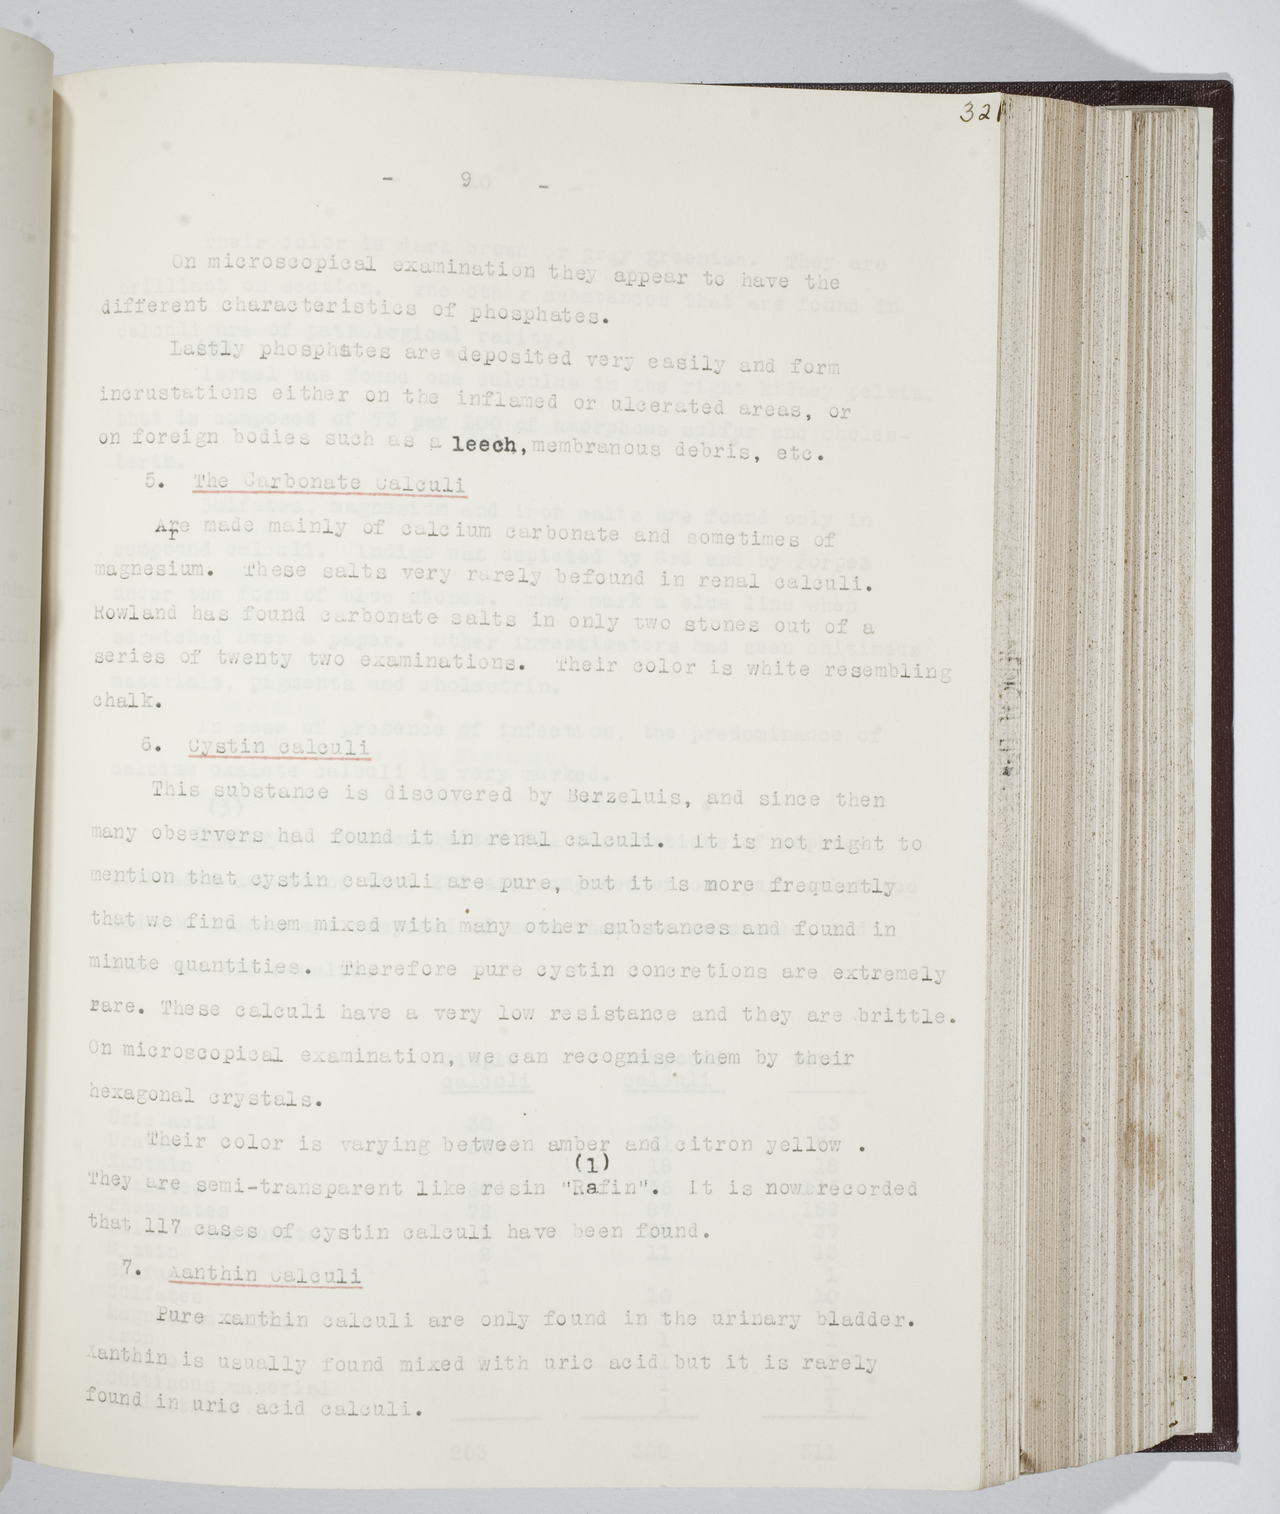 321
- 9 -
On microscopical examination they appear to have the
different characteristics of phosphates.
Lastly phosphates are deposited very easily and form
incrustations either on the inflamed or ulcerated areas, or
on foreign bodies such as a leech, membranous debris, etc.
5. The Carbonate Calculi
Are made mainly of calcium carbonate and sometimes of
magnesium. These salts very rarely befound in renal calculi.
Rowland has found carbonate salts in only two stones out of a
series of twenty two examinations. Their color is white resembling
chalk.
6. Cystin calculi
This substance is discovered by Berzeluis, and since then
many observers had found it in renal calculi. It is not right to
mention that cystin calculi are pure, but it is more frequently
that we find them mixed with many other substances and found in
minute quantities. Therefore pure cystin concretions are extremely
rare. These calculi have a very low resistance and they are brittle.
On microscopical examination, we can recognise them by their
hexagonal crystals.
Their color is varying between amber and citron yellow .
(1)
They are semi-transparent like resin "Rafin". It is now recorded
that 117 cases of cystin calculi have been found.
7. Xanthin Calculi
Pure xanthin calculi are only found in the urinary bladder.
Xanthin is usually found mixed with uric acid but it is rarely
found in uric acid calculi.